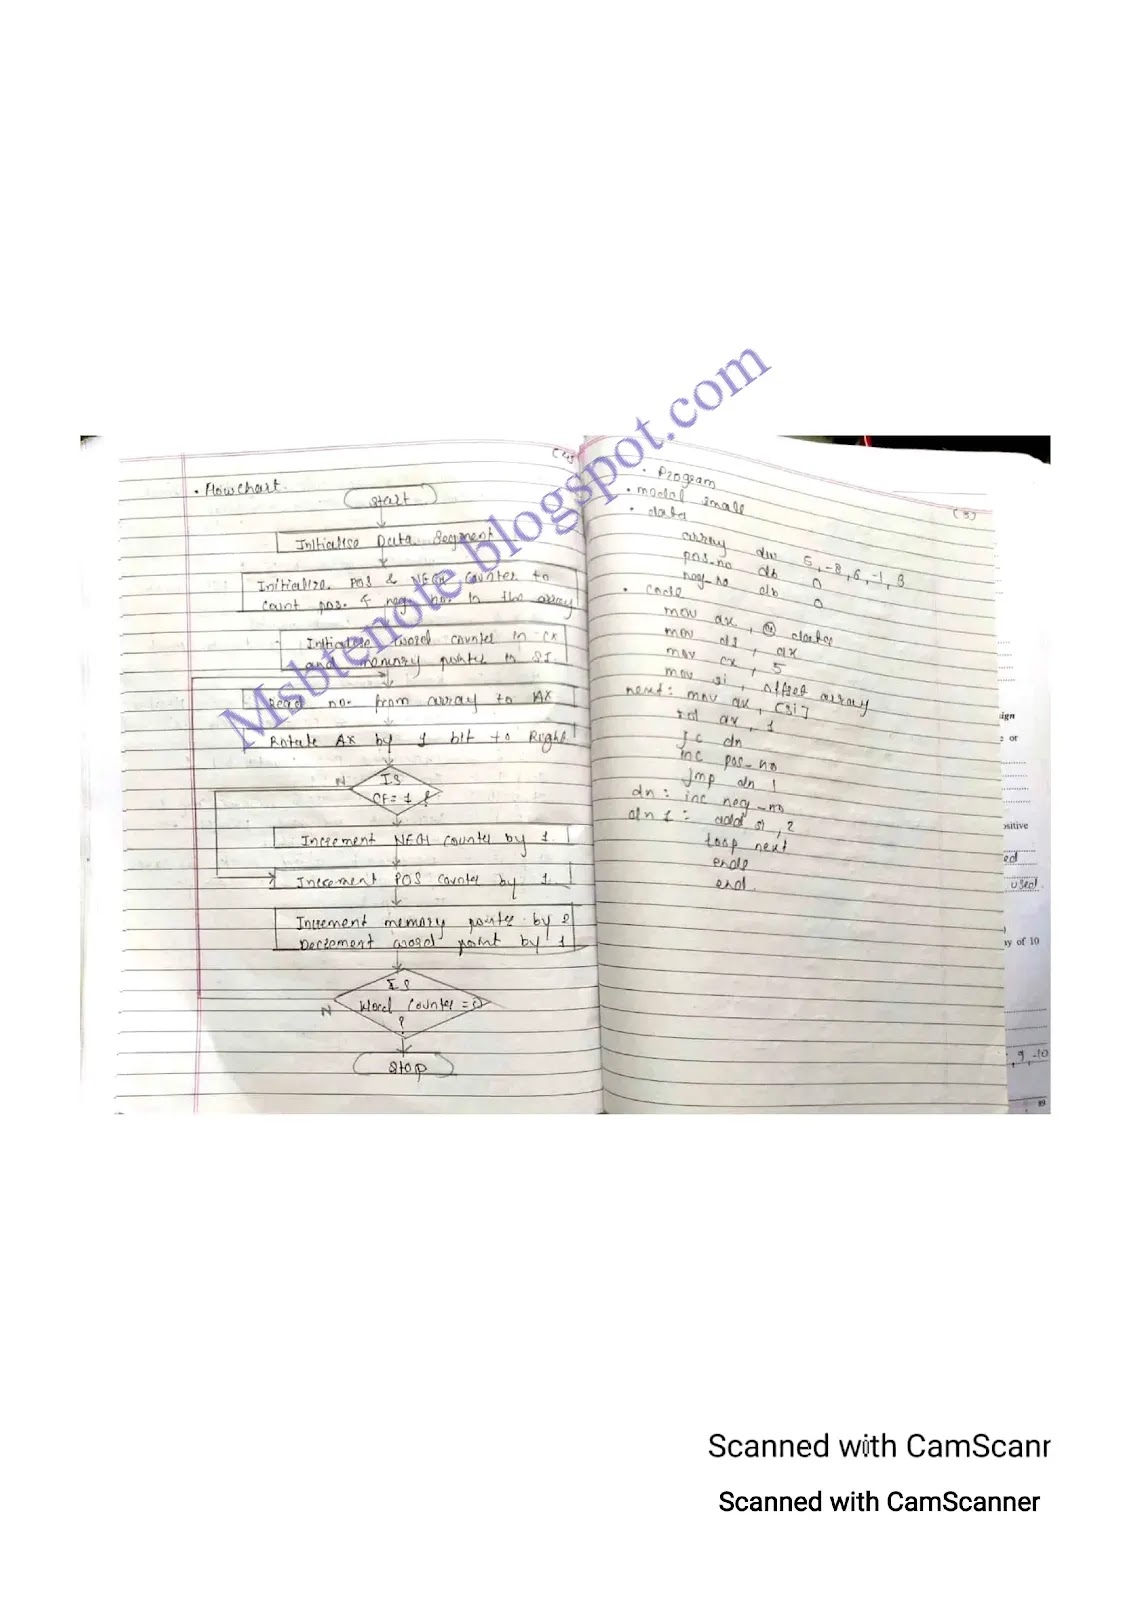 (4)
• Flowchart.
Start
Initialise Data Segment
Initialize POS & NEG counter to
count pos. & neg. no. in the array
Initialise word counter in CX
and memory pointer in SI.
Read no. from array to AX
Rotate AX by 1 bit to Right
N
IS
CF = 1 ?
Increment NEG counter by 1.
Increment POS counter by 1.
Increment memory pointer by 2
Decrement word point by 1
IS
Word Counter = 0
?
N
Stop
(5)
• Program
• model small
• data
array dw 5, -8, 6, -1, 8
pos_no db 0
neg_no db 0
• code
mov ax, @ data
mov ds, ax
mov cx, 5
mov si, offset array
next: mov ax, [si]
rol ax, 1
jc dn
inc pos_no
jmp dn 1
dn: inc neg_no
dn 1: add si, 2
loop next
ends
end.
ign
e or
ositive
ed
used.
ay of 10
9, -10
Msbtenote.blogspot.com
Scanned with CamScanr
Scanned with CamScanner